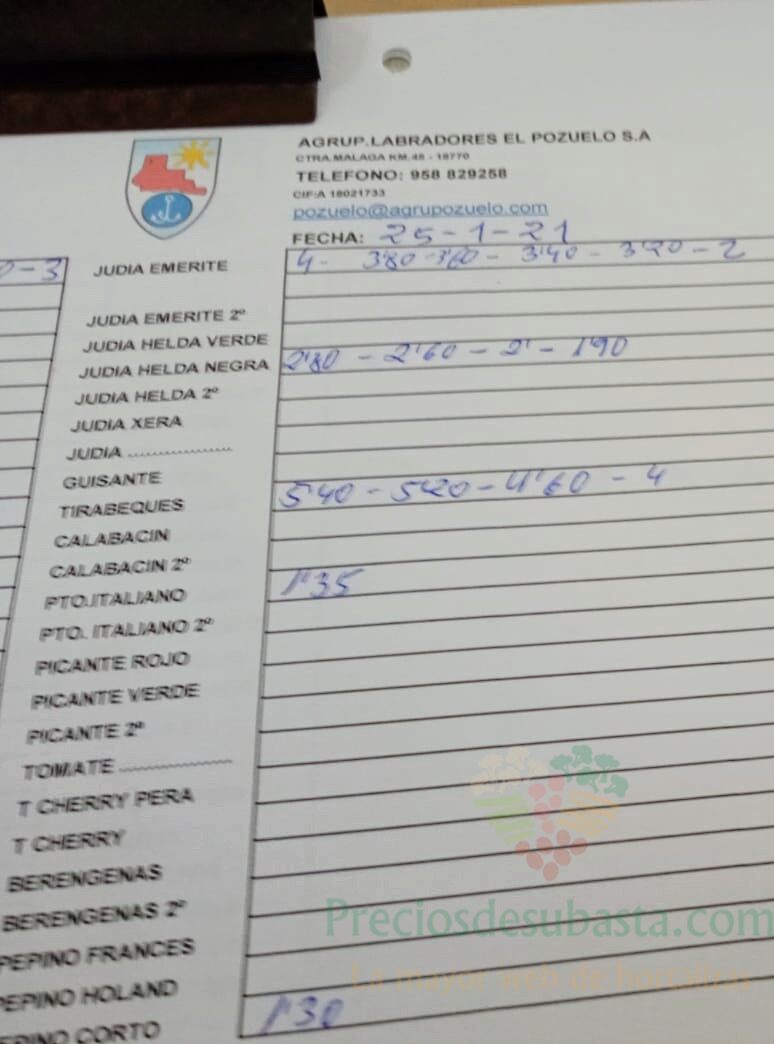 AGRUP.LABRADORES EL POZUELO S.A
CTRA.MALAGA KM.48 - 18770
TELEFONO: 958 829258
CIF:A 18021733
pozuelo@agrupozuelo.com
FECHA: 25-1-21
0-3 JUDIA EMERITE 4- 3'80-3'60- 3'40 - 3'20 - 2
JUDIA EMERITE 2º
JUDIA HELDA VERDE
JUDIA HELDA NEGRA 2'80 - 2'60 - 2' - 1'90
JUDIA HELDA 2º
JUDIA XERA
JUDIA ....................
GUISANTE
TIRABEQUES 5'40 - 5'20 - 4'60 - 4
CALABACIN
CALABACIN 2º
PTO.ITALIANO 1'35
PTO. ITALIANO 2º
PICANTE ROJO
PICANTE VERDE
PICANTE 2ª
TOMATE ....................
T CHERRY PERA
T CHERRY
BERENGENAS
BERENGENAS 2º
PEPINO FRANCES
PEPINO HOLAND
PEPINO CORTO 1'30
Preciosdesubasta.com
La mayor web de hortalizas